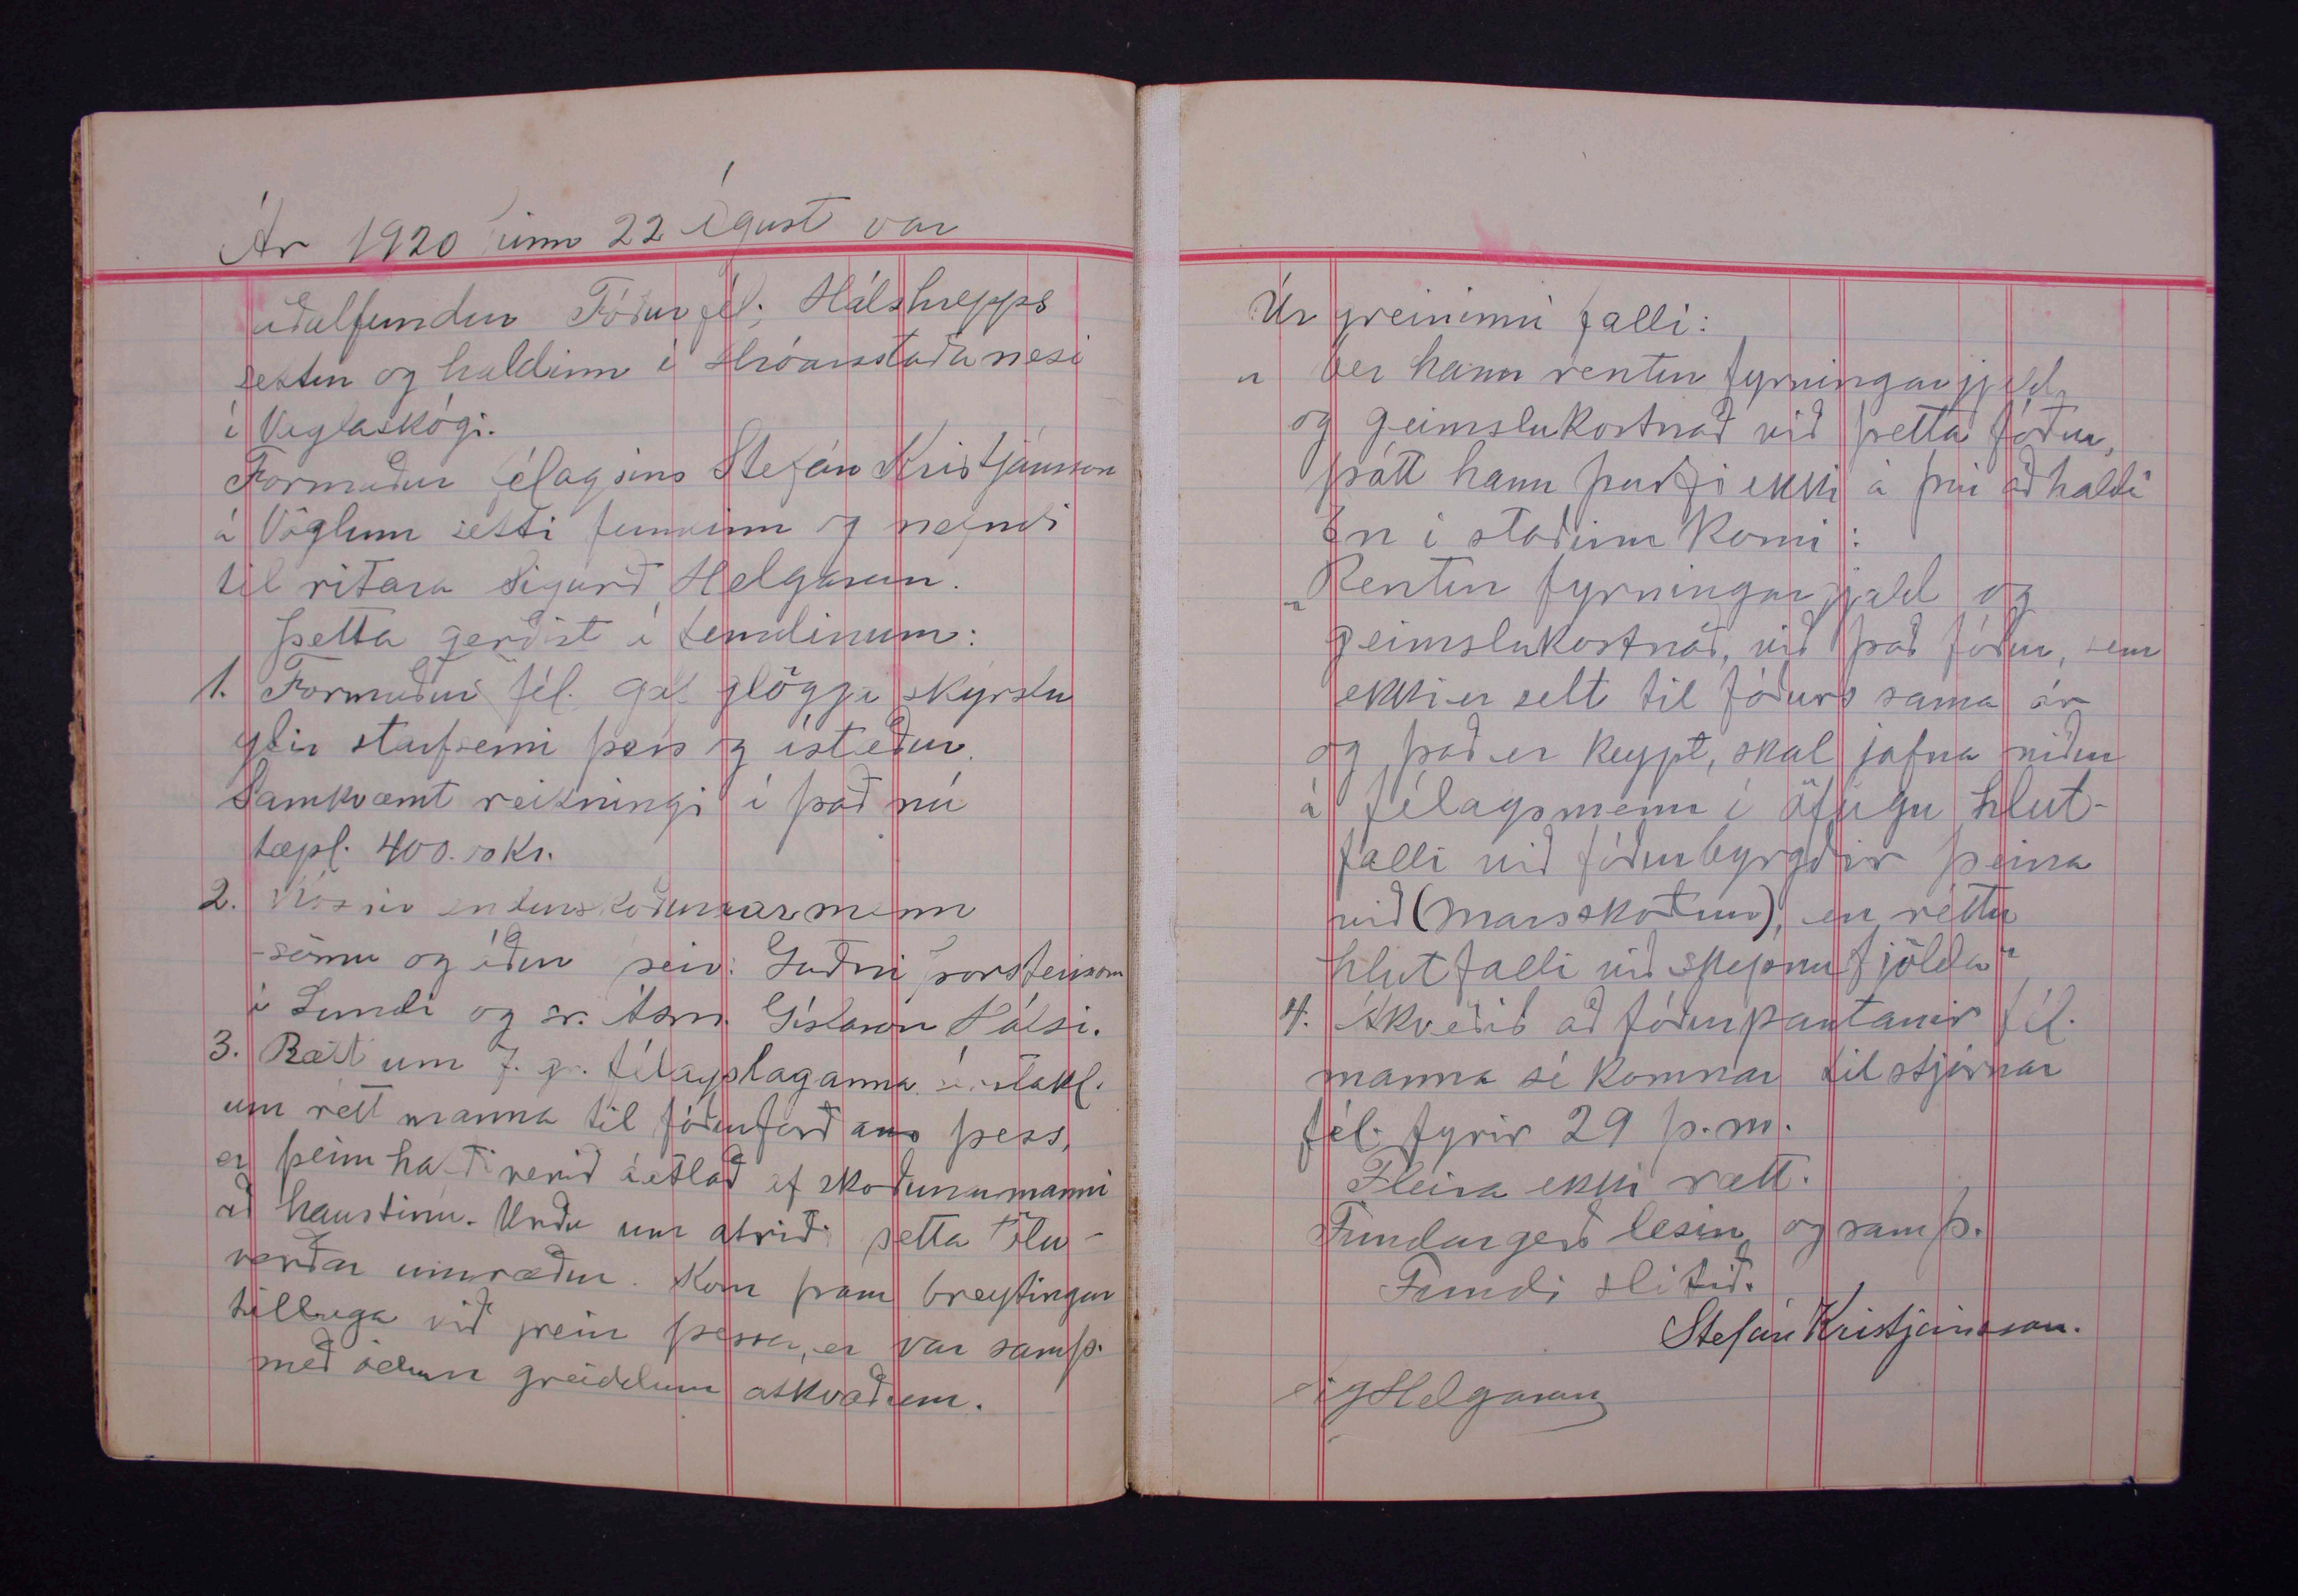 Ár 1920 inn 22 ágúst var
aðalfundur Fóðurfél. Hálshrepps
settur og haldinn í Hróarsstaðanesi
í Vaglaskógi.
Formaður félagsins Stefán Kristjánsson
á Vöglum setti fundinn og nefndi
til ritara Sigurð Helgason.
Þetta gerðist á fundinum:
1. Formaður fél. gaf glögga skýrslu
yfir starfsemi þess og ástæður.
Samkvæmt reikningi á það nú
tæpl. 400.00 kr.
2. Kosnir endurskoðunarmenn
sömu og áður þeir: Guðni Þorsteinsson
í Lundi og sr. Ásm. Gíslason Hálsi.
3. Rætt um 7. gr. félagslaganna sérstakl.
um rétt manna til fóðurforðans þess,
er þeim hafði verið áætlað af skoðunumanni
að haustinu. Urðu um atriði þetta tölu-
verðar umræður. Kom fram breytingar
tillaga við grein þessa, er var samþ.
með öllum greiddum atkvæðum.
Úr greininni falli:
„ Ber hann rentur fyrningargjald
og geimslukostnað við þetta fóður,
þótt hann þurfi ekki á því að halda
En í staðinn komi:
„Rentur fyrningargjald og
geimslukostnað, við það fóður, sem
ekki er selt til fóðurs sama ár
og það er keypt, skal jafna niður
á félagsmenn í öfugu hlut-
falli við fóðurbyrgðir þeirra
við (marsskoðun), en réttu
hlutfalli við skepnufjölda"
4. Ákveðið að fóðurpantanir fél.
manna sé komnar til stjórnar
fél. fyrir 29 þ.m.
Fleira ekki rætt.
Fundargerð lesin og samþ.
Fundi slitið.
Stefán Kristjánsson.
Sig Helgason